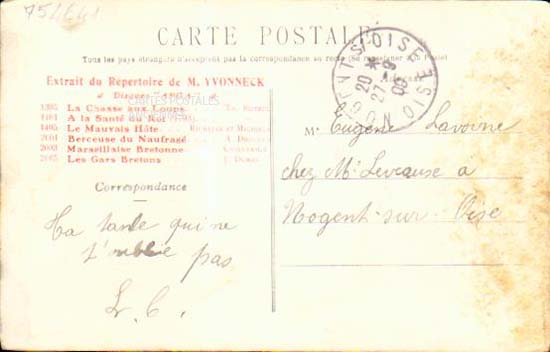 751641
CARTE POSTALE
Tous les pays étrangers n'acceptent pas la correspondance au recto (Se renseigner à la Poste)
Extrait du Répertoire de M. YVONNECK
Disques
1395 La Chasse aux Loups
1401 A la Santé du Roi
1405 Le Mauvais Hôte
2001 Berceuse du Naufragé
2003 Marseillaise Bretonne
2005 Les Gars Bretons
CARTES POSTALES
Correspondance
Ta tante qui ne
t'oublie pas
L. C.
OISE OISE
20 *
27-9
08
Adresse
M. Eugène Lavoine
chez Mr Levrause a
Nogent-sur-Oise